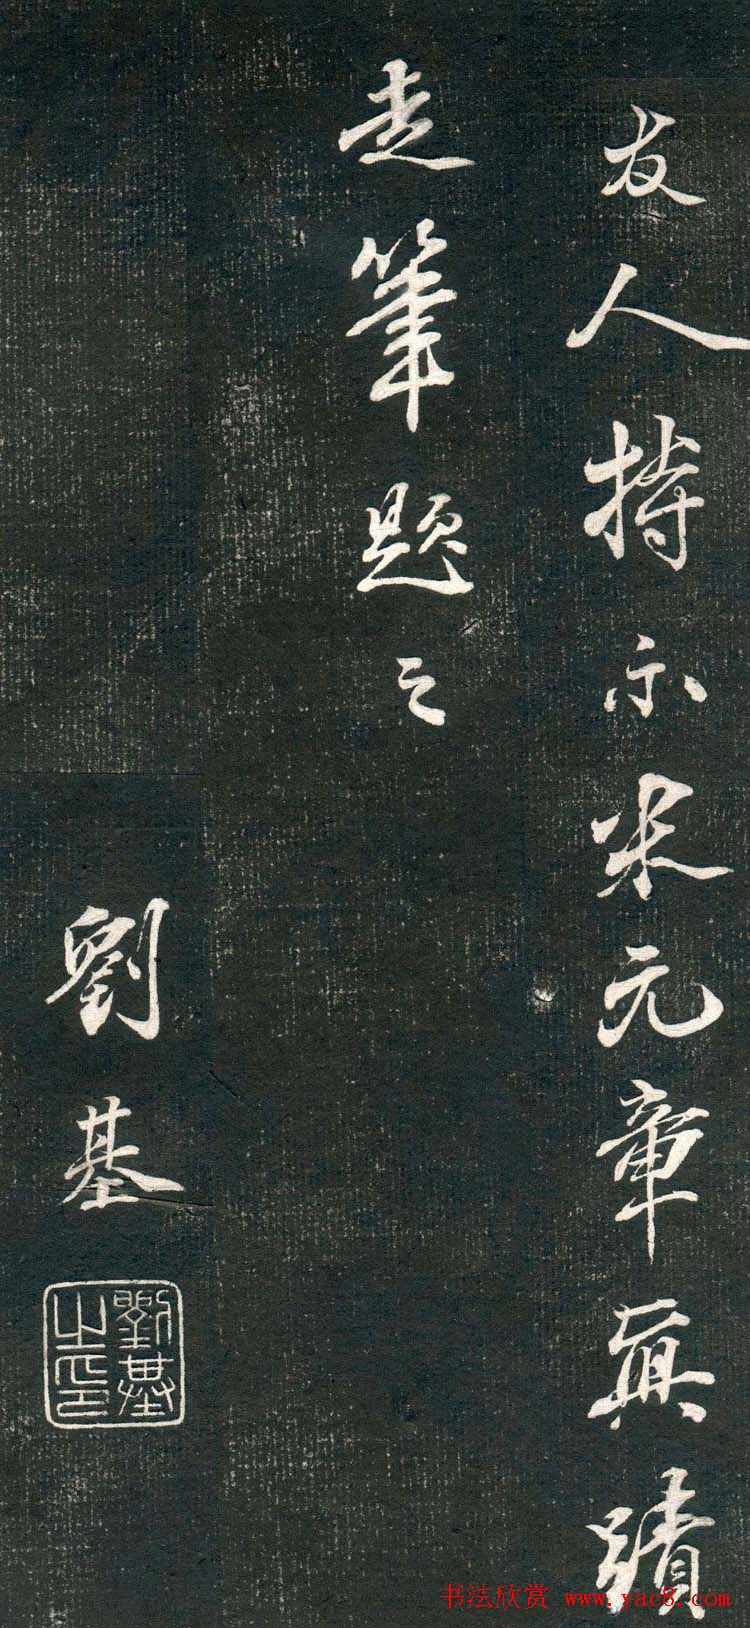 友人持示米元章真蹟
走筆題之
劉基
劉基之印
书法欣赏 www.yac8.com